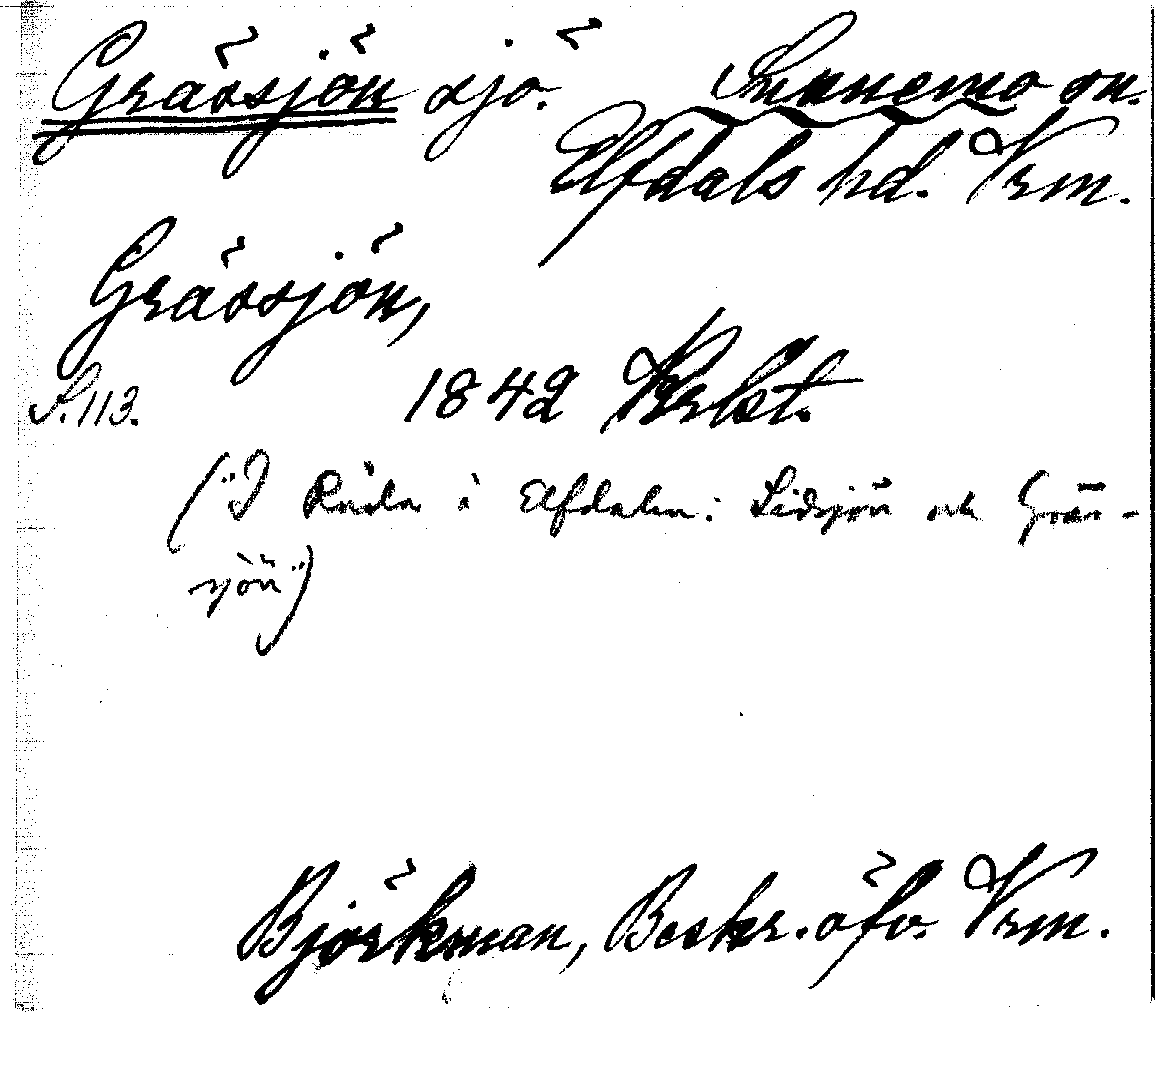 Grässjön sjö. Sunnemo sn.
Elfdals hd. Vrm.
Grässjön,
S. 113. 1842 Krlst.
("I Råda i Elfdalen: Lidsjön och Gräs-
sjön")
Björkman, Beskr. öfv. Vrm.